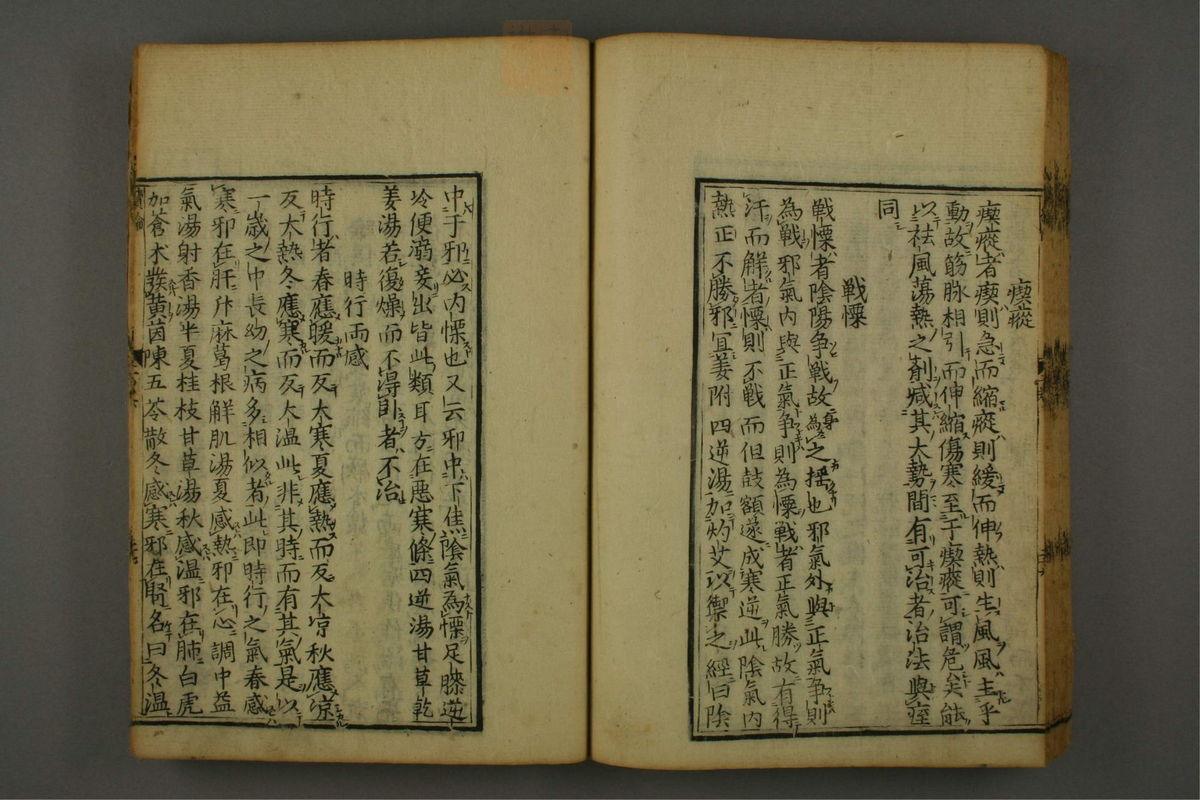 瘈瘲
瘈瘲者瘈則急而縮瘲則緩而伸熱則生風風主乎
動故筋脉相引而伸縮傷寒至于瘈瘲可謂危矣能
以祛風蕩熱之剤減其大勢間有可治者治法與痙
同
戦慄
戦慄者陰陽争戦故為之揺也邪氣外與正氣争則
為戦邪氣内與正氣争則為慄戦者正氣勝故有得
汗而解者慄則不戦而但鼓頷遂成寒逆此陰氣内
熱正不勝邪宜姜附四逆湯加灼艾以禦之經曰陰
中于邪必内慄也又云邪中下焦陰氣為慄足膝逆
冷便溺妄出皆此類耳方在悪寒條四逆湯甘草乾
姜湯若復燥而不得臥者不治
時行両感
時行者春應暖而反大寒夏應熱而反大凉秋應凉
反大熱冬應寒而反大温此非其時而有其氣是以
一歳之中長幼之病多相似者此即時行之氣春感
寒邪在肝升麻葛根解肌湯夏感熱邪在心調中益
氣湯射香湯半夏桂枝甘草湯秋感温邪在肺白虎
加蒼木發黄茵陳五苓散冬感寒邪在腎名曰冬温